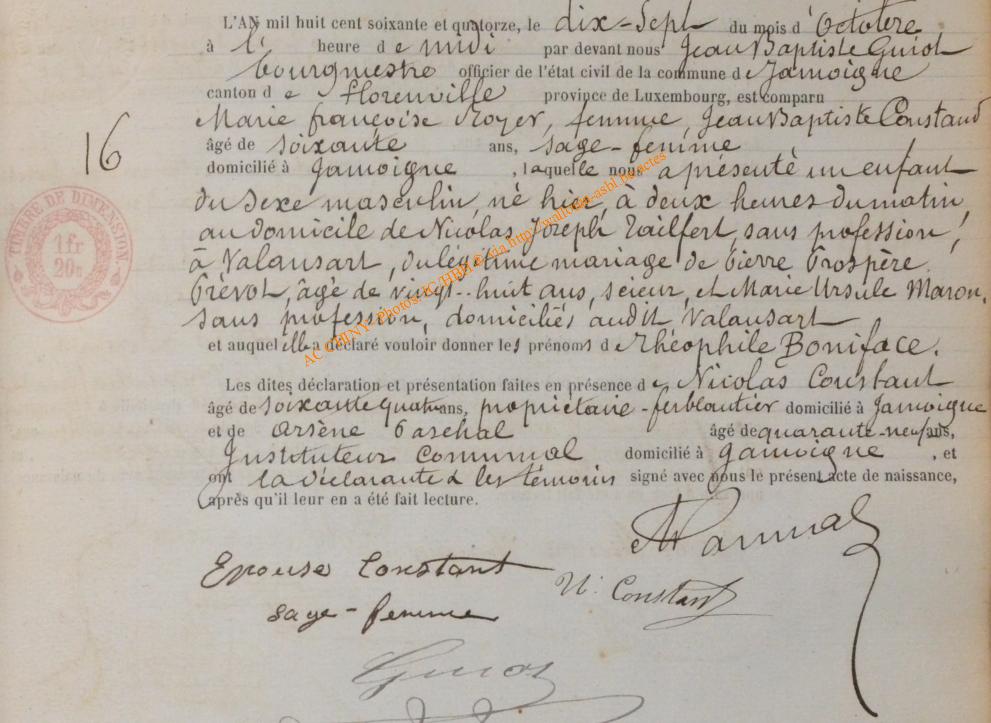 L'AN mil huit cent soixante et quatorze, le dix-Sept du mois d'Octobre
à 1 heure de midi par devant nous Jean Baptiste Guiot
bourgmestre officier de l'état civil de la commune de Jamoigne
canton de Florenville province de Luxembourg, est comparu
Marie françoise Royer, femme, Jean Baptiste Constand
âgé de soixante ans, sage-femme
domicilié à Jamoigne, laquelle nous a présenté un enfant
du Sexe masculin, né hier, à deux heures du matin,
au domicile de Nicolas Joseph Tailfert, sans profession,
à Valansart, du légitime mariage de Pierre Prospère
Prévot, âgé de vingt-huit ans, scieur, et Marie Ursule Maron,
sans profession, domiciliés audit Valansart
et auquel elle a déclaré vouloir donner les prénoms de Théophile Boniface.
Les dites déclaration et présentation faites en présence de Nicolas Constant
âgé de soixante quatre ans, propriétaire-ferblantier domicilié à Jamoigne
et de Arsène Paschal âgé de quarante-neuf ans,
Instituteur Communal domicilié à Jamoigne, et
ont la déclarante & les témoins signé avec nous le présent acte de naissance,
après qu'il leur en a été fait lecture.
16
TIMBRE DE DIMENSION
1fr
20c
AC CHINY - Photos: IC HBH © via http://wallonia-asbl.be/actes
Epouse Constant
N. Constant
sage-femme
Guiot